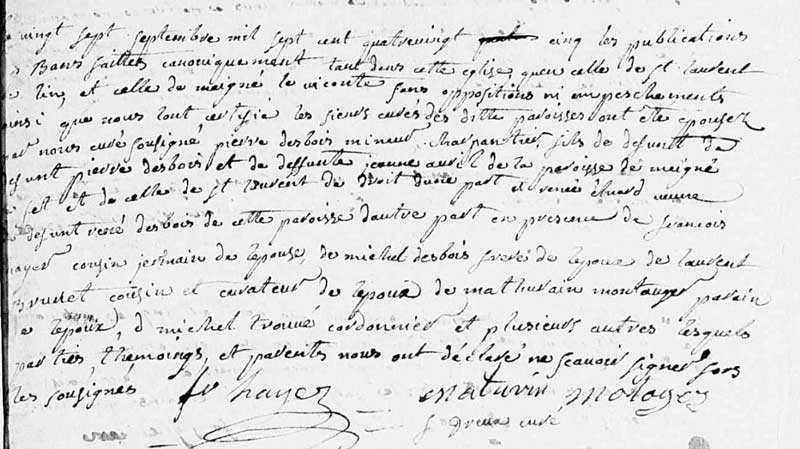 le vingt sept septembre mil sept cent quatrevingt cinq les publications
Bans faittes canoniquement tant dans cette eglise quen celle de st laurent
lin, et celle de meigné le viconte sans oppositions ni empeschements
ainsi que nous lont certifie les sieurs curés des ditte paroisses ont eté epousez
par nous curé sousigné pierre desbois mineur charpantier fils de defunt de
defunt pierre desbois et de deffunte jeanne avril de la paroisse de meigné
et de celle de st laurent de droit dune part et renée veuve
defunt rené desbois de cette paroisse dautre part en presence de francois
hayer cousin jermain de lepouse, de michel desbois frere de lepoux de laurent
cousin et curateur de lepoux de mathurain montauger parain
de lepoux, d michel trouvé cordonnier et plusieurs autres lesquels
parties themoings, et parents nous ont déclaré ne scavoir signer fors
les sousignés fr hayer maturin motoger
curé